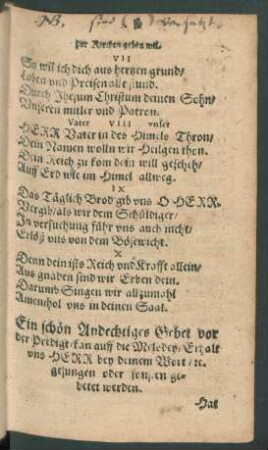 zur Kirchen gehen wil.
VII
So wil ich dich aus hertzen grund/
Loben und Preisen alle stund.
Durch Jhesum Christum deinen Sohn/
Unseren mitler und Patron.
Vater VIII unser
HERR Vater in des Himels Thron/
Dein Namen wolln wir Heilgen thon.
Dein Reich zu kom dein will gescheh/
Auff Erd wie im Himel allweg.
IX
Das Täglich Brod gib vns O HERR
Vergib/als wir dem Schüldiger/
In versuchung führ vns auch nicht/
Erlöß vns von dem Bösewicht.
X
Denn dein ists Reich vnd Krafft allein/
Aus gnaden sind wir Erben dein.
Darumb Singen wir allzumahl
Amen/hol vns in deinen Saal.
Ein schön Andechtiges Gebet vor
der Predigt/kan auff die Melodey/Erhalt
vns HERR bey deinem Wort/etc.
gesungen oder sonsten ge-
betet werden.
Has